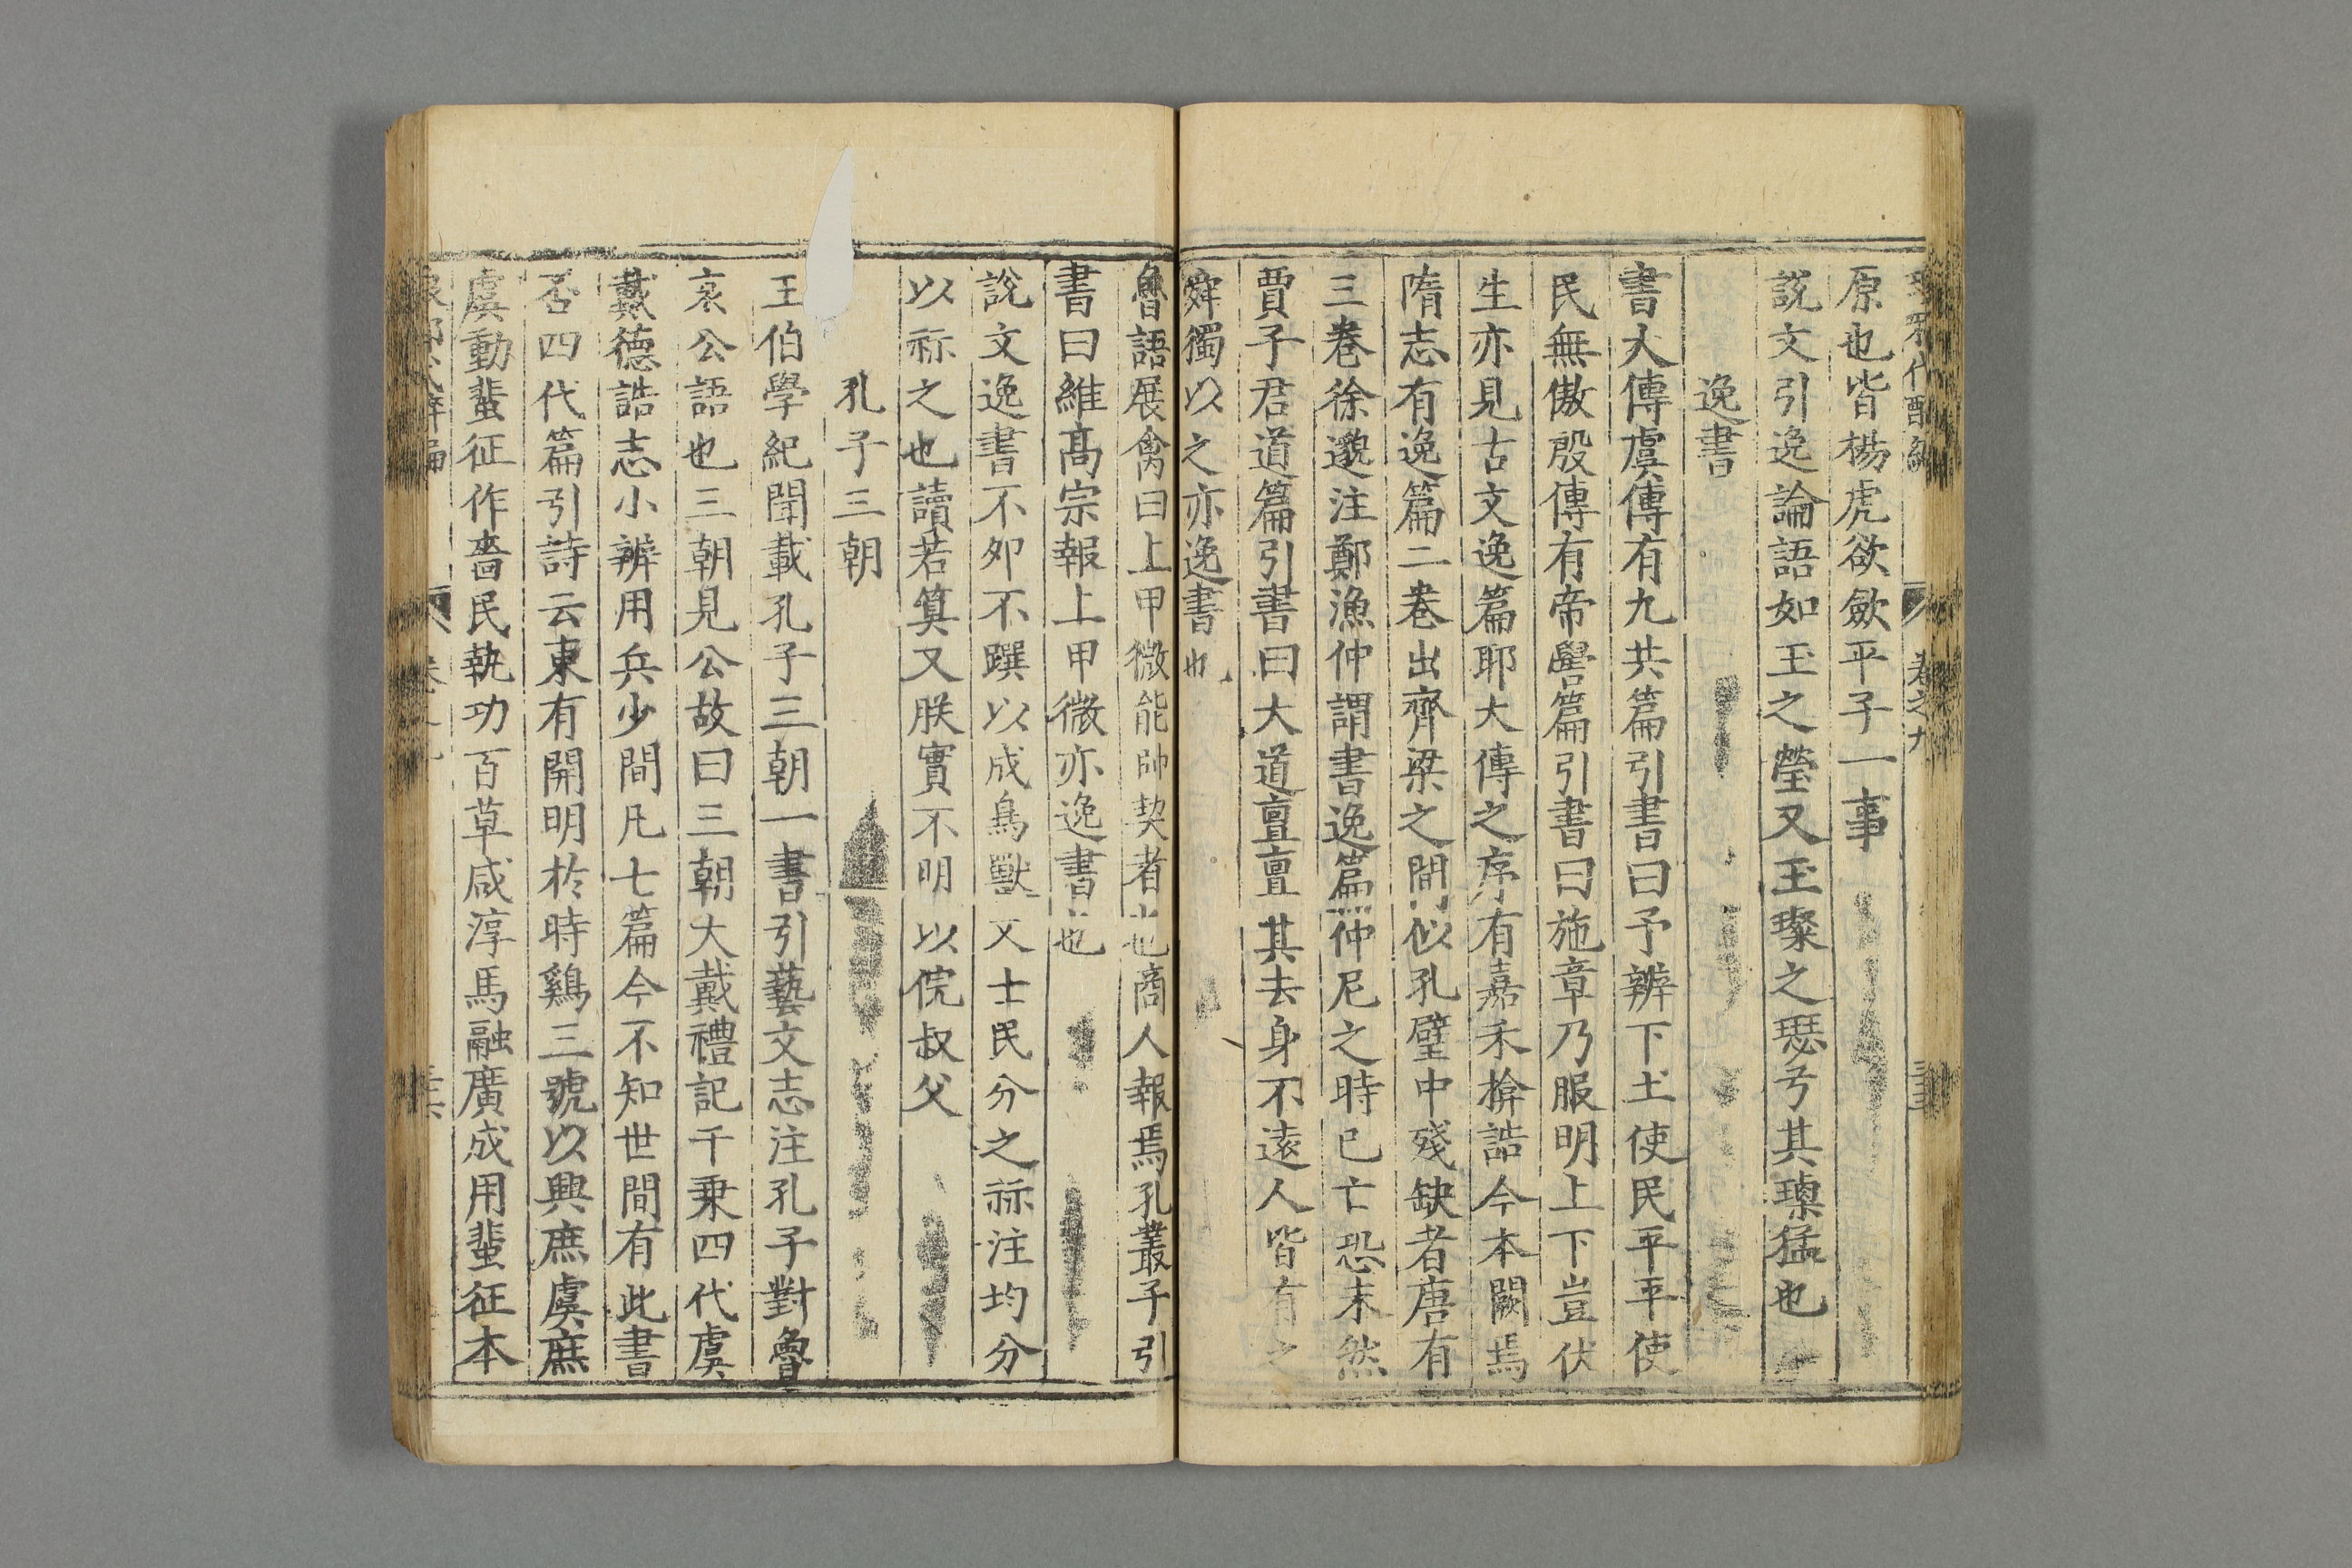 原也皆楊虎欲歛平子一事
說文引逸論語如玉之瑩又玉璨之瑟兮其瓅猛也
逸書
書大傳虞傳有九共篇引書曰予辨下土使民平平使
民無傲殷傳有帝嚳篇引書曰施章乃服明上下豈伏
生亦見古文逸篇耶大傳之序有嘉禾揜誥今本闕焉
隋志有逸篇二巻出齊梁之間似孔壁中殘缺者唐有
三巻徐邈注鄭漁仲謂書逸篇仲尼之時已亡恐未然
賈子君道篇引書曰大道亶亶其去身不逺人皆有之
舜獨以之亦逸書也
魯語展禽曰上甲微能帥契者也商人報焉孔叢子引
書曰維髙宗報上甲微亦逸書也
說文逸書不夘不蹼以成鳥獸又士民分之祘注均分
以祘之也讀若筭又朕實不明以俒叔父
孔子三朝
王伯學紀聞載孔子三朝一書引藝文志注孔子對魯
哀公語也三朝見公故曰三朝大戴禮記千乗四代虞
戴德誥志小辨用兵少間凡七篇今不知世間有此書
否四代篇引詩云東有開明於時鷄三號以興庶虞庶
虞動蜚征作嗇民執功百草咸淳馬融廣成用蜚征本